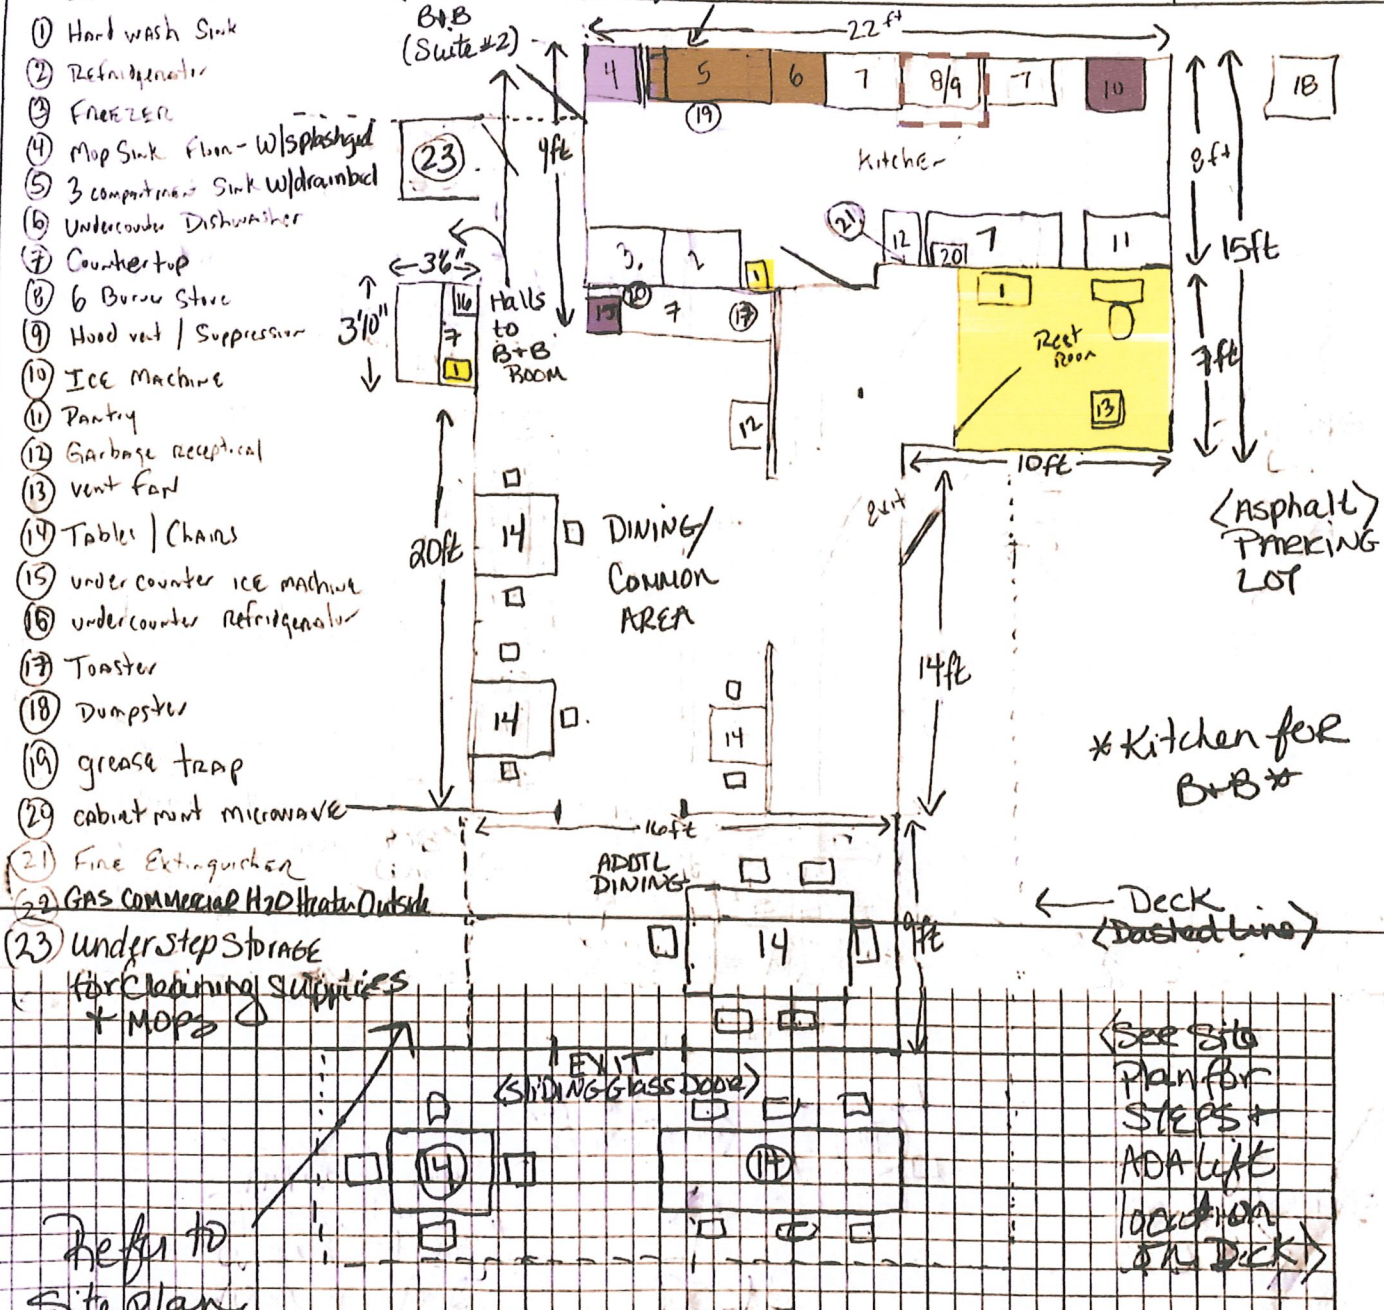 ① Hand wash Sink
② Refridgenator
③ FREEZER
④ Mop Sink Floor - W/splashgrd
⑤ 3 compartment Sink W/drainbrd
⑥ Undercounter Dishwasher
⑦ Countertop
⑧ 6 Burner Stove
⑨ Hood vent / Suppression
⑩ ICE MACHINE
⑪ Pantry
⑫ Garbage Receptical
⑬ vent FAN
⑭ Tables / Chairs
⑮ under counter ICE MACHINE
⑯ undercounter Refridgenator
⑰ Toaster
⑱ Dumpster
⑲ grease TRAP
20 CABINET mount MICROWAVE
21 Fire Extinguisher
22 GAS COMMERCIAL H2O Heater Outside
(23) Under Step STORAGE
for Cleaning Supplies
+ MOPS
Refer to
Site plan
B+B
(Suite #2)
22 ft
4
5
6
7
8/9
7
10
18
19
23
9ft
Kitchen
8ft
15ft
21
12
20
7
11
3.
2
1
3'6"
3'0"
16
7
1
Halls
to
B+B
ROOM
15
20
7
17
1
Rest
Room
13
7ft
12
10ft
exit
<Asphalt>
PARKING
LOT
20ft
14
DINING/
COMMON
AREA
14ft
14
14
*Kitchen for
B+B*
16ft
ADDTL
DINING
14
9ft
← Deck
<Dashed Line>
EXIT
<SLIDING Glass Door>
14
14
<See Site
Plan for
STEPS +
ADA Lift
location
ON Deck>